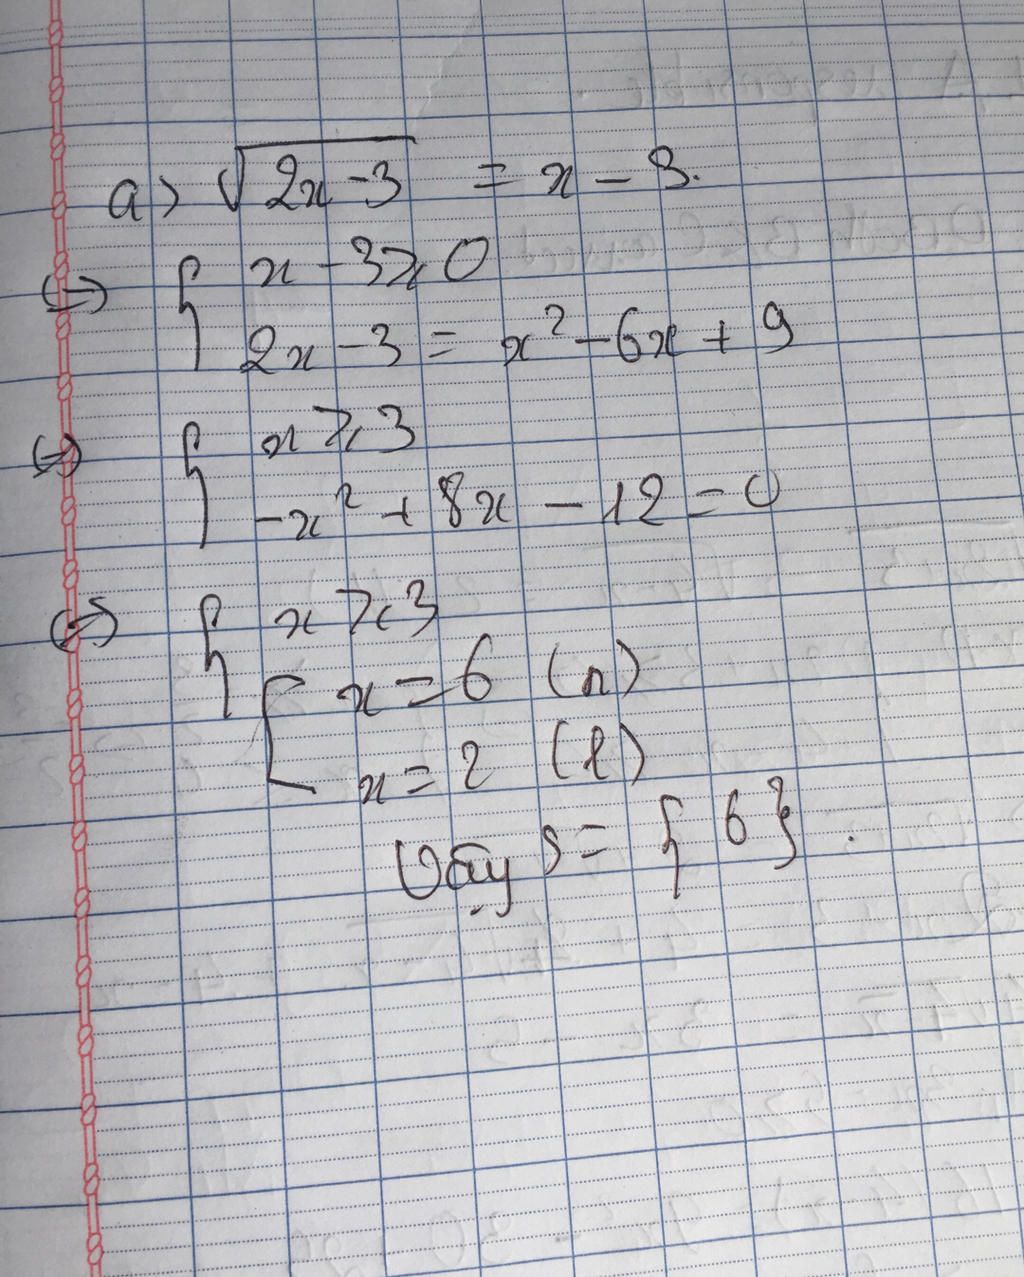 a) √2x-3 = x - 3.
⇔ { x - 3 ≥ 0
2x - 3 = x² - 6x + 9
⇔ { x ≥ 3
-x² + 8x - 12 = 0
⇔ { x ≥ 3
[ x = 6 (n)
x = 2 (l)
Vậy S = { 6 } .